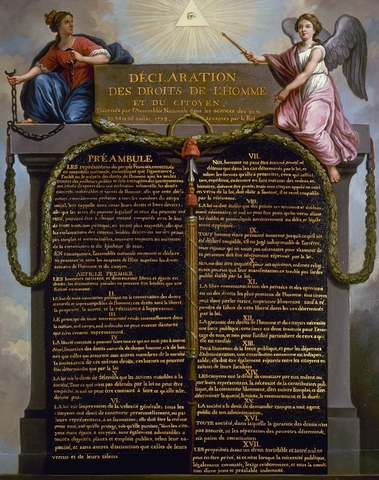 DÉCLARATION
DES DROITS DE L'HOMME
ET DU CITOYEN,
Décrétés par l'Assemblée Nationale dans les séances des 20, 21
acceptés par le Roi
PRÉAMBULE
LES représentans du peuple François, constitués
en assemblée nationale, considérant que l'ignorance,
l'oubli ou le mépris des droits de l'homme sont les seules
causes des malheurs publics et de la corruption des gouvernemens
ont résolu d'exposer dans une déclaration solemnelle, les droits
naturels, inaliénables et sacrés de l'homme; afin que cette décla-
ration, constamment présente à tous les membres du corps
social, leur rappelle sans cesse leurs droits et leurs devoirs;
afin que les actes du pouvoir législatif et ceux du pouvoir exé-
cutif, pouvant être à chaque instant comparés avec le but
de toute institution politique, en soient plus respectés; afin que
les réclamations des citoyens, fondées désormais sur des princi-
pes simples et incontestables, tournent toujours au maintien
de la constitution et du bonheur de tous.
EN conséquence, l'assemblée nationale reconnoit et déclare
en présence et sous les auspices de l'Être suprême les droits
suivans de l'homme et du citoyen.
ARTICLE PREMIER.
LES hommes naissent et demeurent libres et égaux en
droits; les distinctions sociales ne peuvent être fondées que sur
l'utilité commune.
II.
LE but de toute association politique est la conservation des droits
naturels et imprescriptibles de l'homme; ces droits sont la liberté,
la propriété, la sureté, et la résistance à l'oppression.
III.
LE principe de toute souveraineté réside essentiellement dans
la nation, nul corps, nul individu ne peut exercer d'autorité
qui n'en émane expressément.
LA liberté consiste à pouvoir faire tout ce qui ne nuit pas à autrui
Ainsi, l'exercice des droits naturels de chaque homme, n'a de bor-
nes que celles qui assurent aux autres membres de la société
la jouissance de ces mêmes droits; ces bornes ne peuvent
être déterminées que par la loi
LA loi n'a le droit de défendre que les actions nuisibles à la
société. Tout ce qui n'est pas défendu par la loi ne peut être
empêché, et nul ne peut être contraint à faire ce qu'elle n'or-
donne pas.
VI.
LA loi est l'expression de la volonté générale; tous les
citoyens ont droit de concourir personnellement, ou par
leurs représentans, à sa formation; elle doit être la même
pour tous, soit qu'elle protège, soit qu'elle punisse. Tous les
citoyens étant égaux à ses yeux, sont également admissibles à
toutes dignités, places et emplois publics, selon leur ca-
pacité, et sans autres distinctions que celles de leurs
vertus et de leurs talens
VII.
NUL homme ne peut être accusé, arrêté ni
détenu que dans les cas déterminés par la loi, et
selon les formes qu'elle a prescrites, ceux qui sollici-
tent, expédient, exécutent ou font exécuter des ordres
arbitraires, doivent être punis; mais tout citoyen appelé ou saisi
en vertu de la loi, doit obéir à l'instant, il se rend coupable
par la résistance.
VIII.
LA loi ne doit établir que des peines strictement et évidem-
ment nécessaires, et nul ne peut être puni qu'en vertu d'une
loi établie et promulguée antérieurement au délit, et légale-
ment appliquée.
IX.
TOUT homme étant présumé innocent jusqu'à ce qu'il ait
été déclaré coupable, s'il est jugé indispensable de l'arrêter,
toute rigueur qui ne seroit pas nécessaire pour s'assurer de
sa personne doit être sévèrement réprimée par la loi.
X.
NUL ne doit être inquiété pour ses opinions, mêmes reli-
gieuses pourvu que leur manifestation ne trouble pas l'ordre
public établi par la loi.
XI.
LA libre communication des pensées et des opinions
est un des droits les plus précieux de l'homme; tout citoyen
peut donc parler, écrire, imprimer librement: sauf à ré-
pondre de l'abus de cette liberté dans les cas déterminés
par la loi.
XII.
LA garantie des droits de l'homme et du citoyen nécessite
une force publique; cette force est donc instituée pour l'avan-
tage de tous, et non pour l'utilité particulière de ceux à qui
elle est confiée.
XIII.
Pour l'entretien de la force publique, et pour les dépenses
d'administration, une contribution commune est indispen-
sable; elle doit être également répartie entre les citoyens en
raison de leurs facultés
XIV.
LES citoyens ont le droit de constater par eux même ou
par leurs représentans, la nécessité de la contribution pu-
blique, de la consentir librement, d'en suivre l'emploi, et d'en
déterminer la quotité, l'assiette, le recouvrement et la durée.
XV.
LA société a le droit de demander compte à tout agent
public de son administration.
TOUTE société, dans laquelle la garantie des droits n'est
pas assurée, ni la séparation des pouvoirs déterminée,
n'a point de constitution
XVII.
LES propriétés étant un droit inviolable et sacré, nul ne
peut en être privé, si ce n'est lorsque la nécessité publique,
légalement constatée, l'exige évidemment, et sous la condi-
tion d'une juste et préalable indemnité.